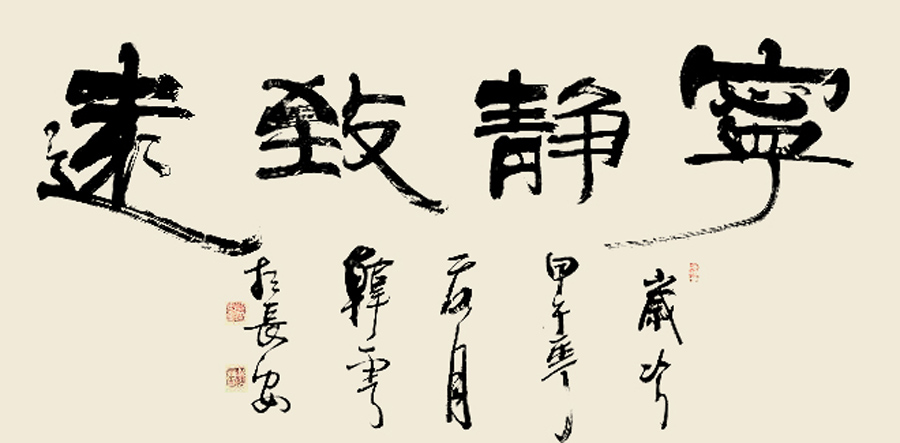 寧静致遠
歲次
甲午
月
韓雲
於長安